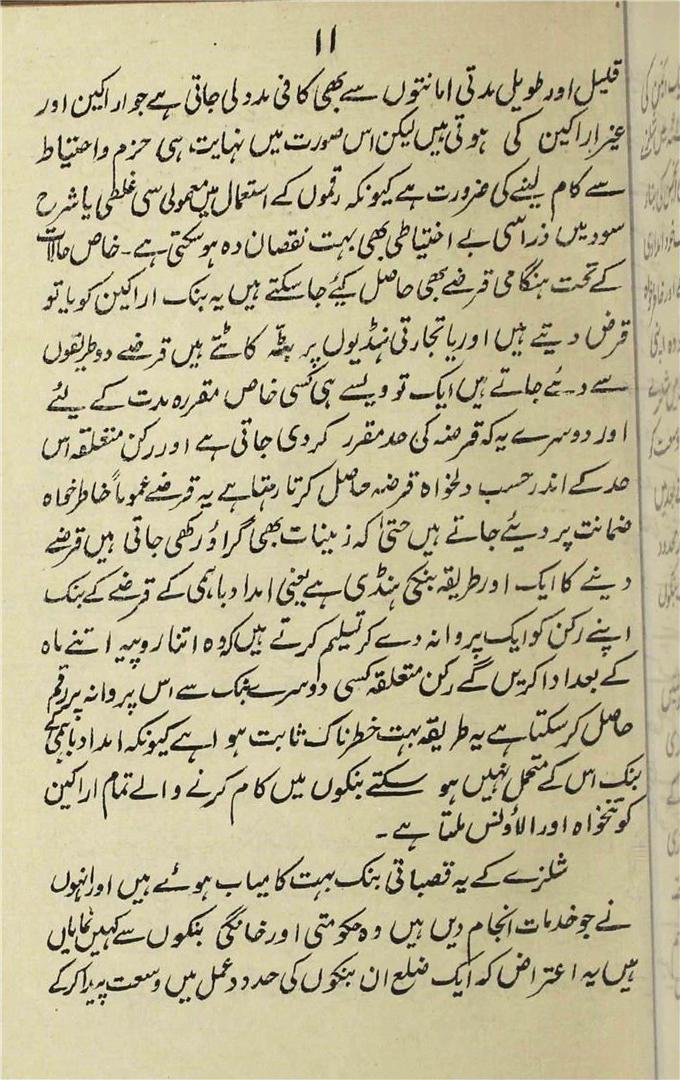 ۱۱
قلیل اور طویل مدتی امانتوں سے بھی کافی مدد لی جاتی ہے جو اراکین اور
غیر اراکین کی ہوتی ہیں لیکن اس صورت میں نہایت ہی حزم و احتیاط
سے کام لینے کی ضرورت ہے کیونکہ رقموں کے استعمال میں معمولی سی غلطی یا شرح
سود میں ذرا سی بے احتیاطی بھی بہت نقصان دہ ہو سکتی ہے۔ خاص حالات
کے تحت ہنگامی قرضے بھی حاصل کیئے جا سکتے ہیں یہ بنک اراکین کو یا تو
قرض دیتے ہیں اور یا تجارتی ہنڈیوں پر بٹہ کاٹتے ہیں قرضے دو طریقوں
سے دیئے جاتے ہیں ایک تو ویسے ہی کسی خاص مقررہ مدت کے لیئے
اور دوسرے یہ کہ قرضہ کی حد مقرر کر دی جاتی ہے اور رکن متعلقہ اس
حد کے اندر حسب دلخواہ قرضہ حاصل کرتا رہتا ہے یہ قرضے عموماً خاطر خواہ
ضمانت پر دیئے جاتے ہیں حتیٰ کہ زمینات بھی گراؤ رکھی جاتی ہیں قرضے
دینے کا ایک اور طریقہ بنکی ہنڈی ہے یعنی امداد باہمی کے قرضے کے بنک
اپنے رکن کو ایک پروانہ دے کر تسلیم کرتے ہیں کہ وہ اتنا روپیہ اتنے ماہ
کے بعد ادا کریں گے رکن متعلقہ کسی دوسرے بنک سے اس پروانہ پر رقم
حاصل کر سکتا ہے یہ طریقہ بہت خطرناک ثابت ہوا ہے کیونکہ امداد باہمی کے
بنک اس کے متحمل نہیں ہو سکتے بنکوں میں کام کرنے والے تمام اراکین
کو تنخواہ اور الاؤنس ملتا ہے۔
شلزے کے یہ قصباتی بنک بہت کامیاب ہوئے ہیں اور انہوں
نے جو خدمات انجام دیں ہیں وہ حکومتی اور خانگی بنکوں سے کہیں نمایاں
ہیں یہ اعتراض کہ ایک ضلع ان بنکوں کی حدود عمل میں وسعت پیدا کر کے